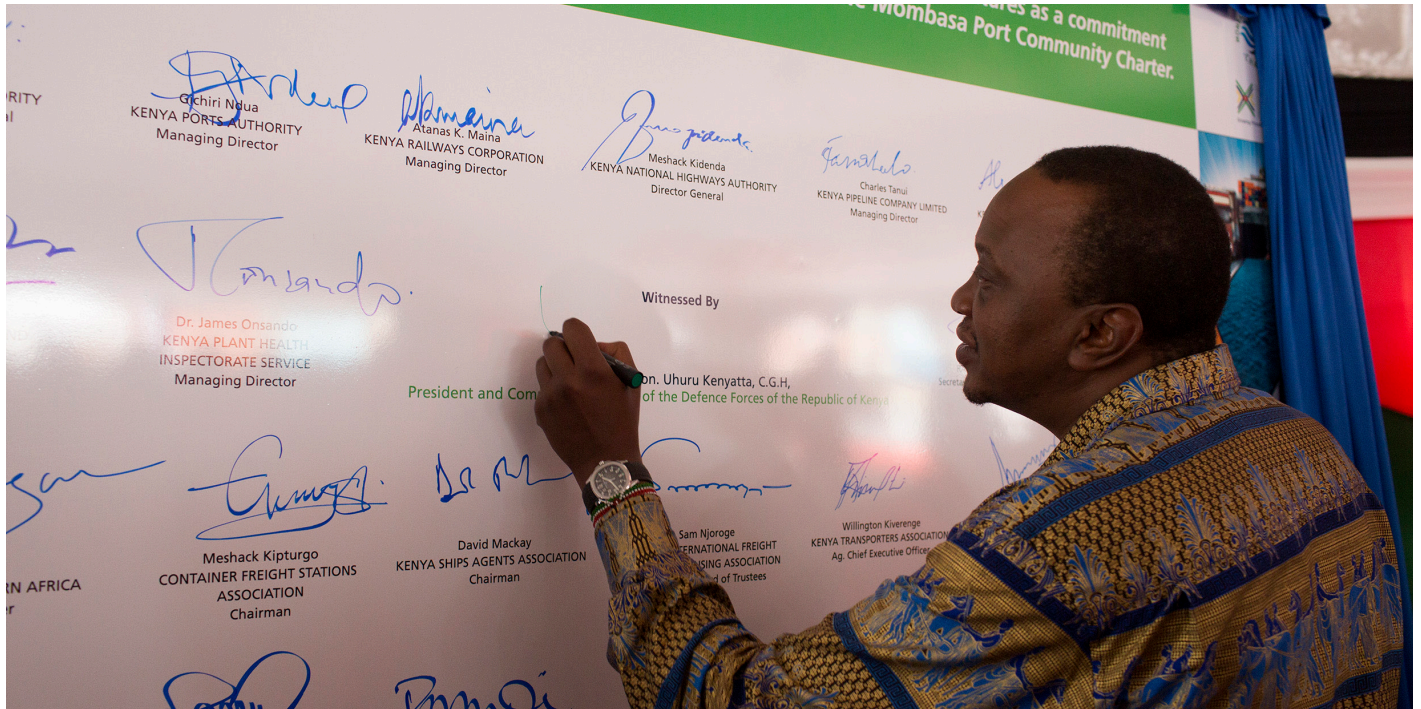 res as a commitment
Mombasa Port Community Charter.
ORITY
Gichiri Ndua
KENYA PORTS AUTHORITY
Managing Director
Atanas K. Maina
KENYA RAILWAYS CORPORATION
Managing Director
Meshack Kidenda
KENYA NATIONAL HIGHWAYS AUTHORITY
Director General
Charles Tanui
KENYA PIPELINE COMPANY LIMITED
Managing Director
Dr. James Onsando
KENYA PLANT HEALTH
INSPECTORATE SERVICE
Managing Director
Witnessed By
on. Uhuru Kenyatta, C.G.H,
President and Com of the Defence Forces of the Republic of Kenya
Secreta
RN AFRICA
Meshack Kipturgo
CONTAINER FREIGHT STATIONS
ASSOCIATION
Chairman
David Mackay
KENYA SHIPS AGENTS ASSOCIATION
Chairman
Sam Njoroge
ERNATIONAL FREIGHT
USING ASSOCIATION
d of Trustees
Willington Kiverenge
KENYA TRANSPORTERS ASSOCIATION
Ag. Chief Executive Officer